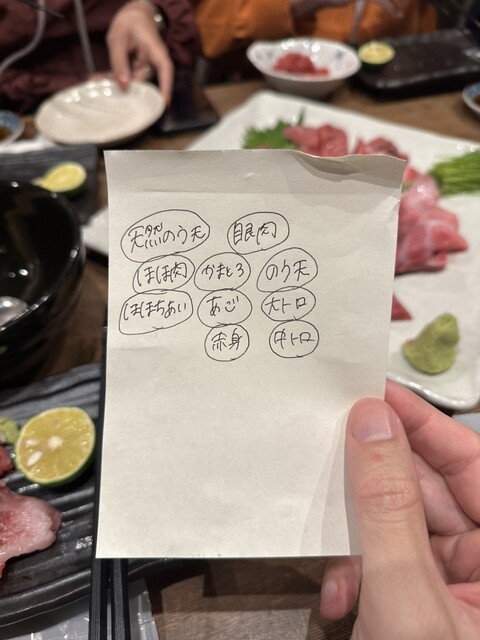 天然のう天 目肉
ほほ肉 かまとろ のう天
ほほちあい あご 大トロ
赤身 中トロ